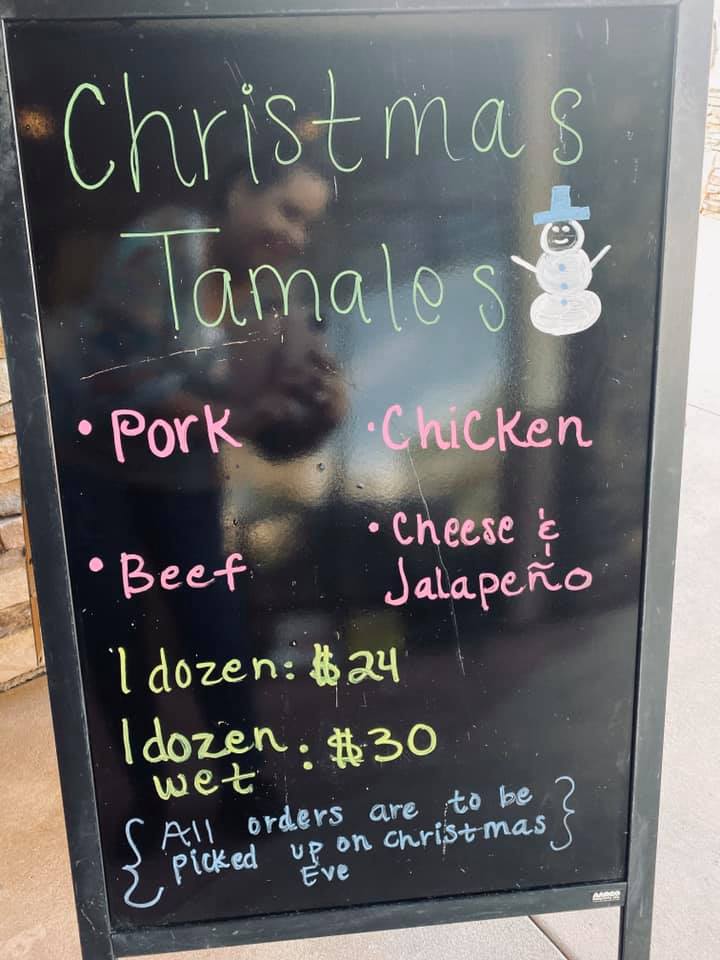 Christmas
Tamales
• Pork
• Chicken
• Beef
• Cheese &
Jalapeño
1 dozen: $24
1 dozen : $30
wet
{ All orders are to be }
picked up on Christmas
Eve